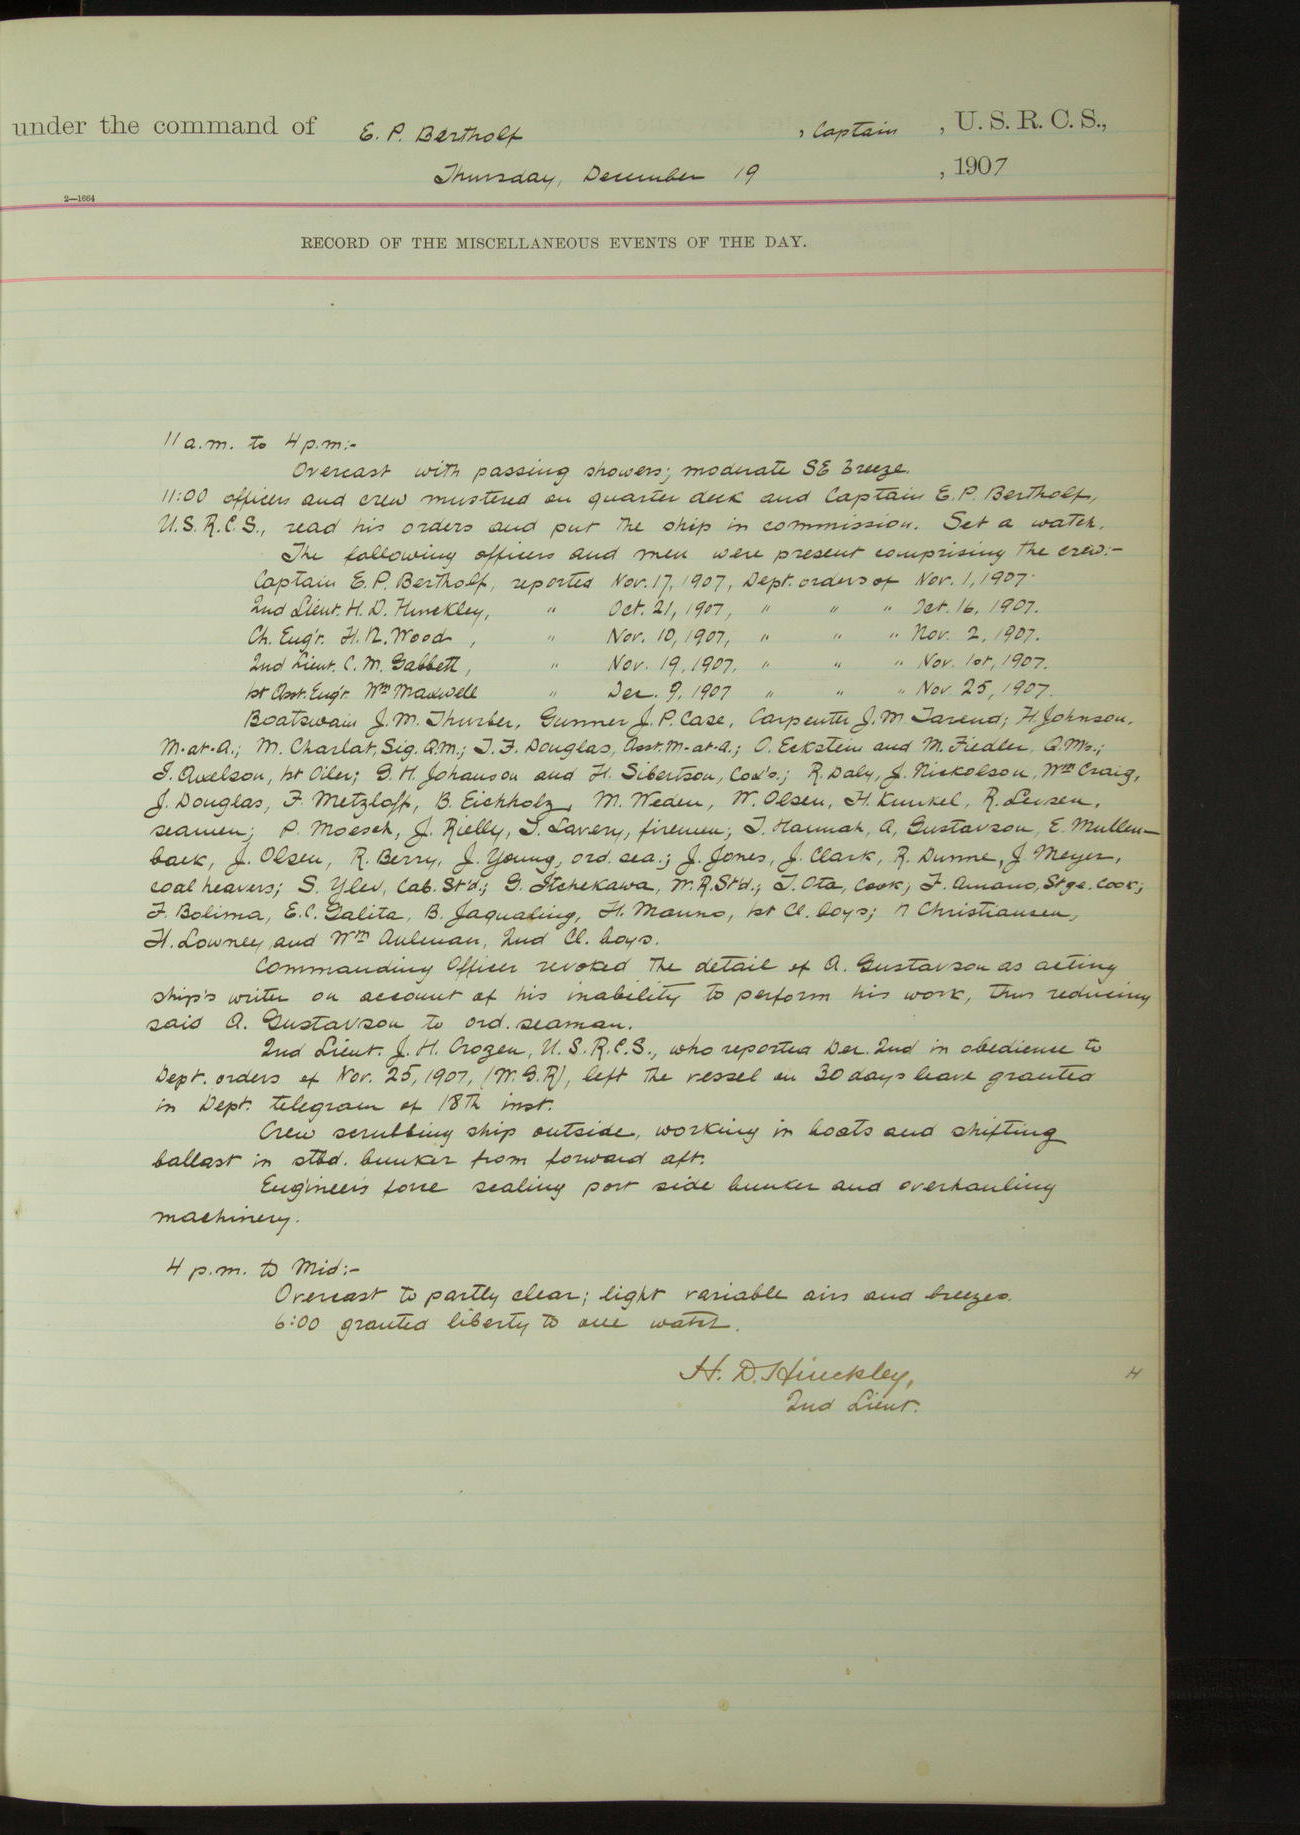 under the command of E. P. Bertholf , Captain , U. S. R. C. S.,
Thursday, December 19 , 1907
2—1664
RECORD OF THE MISCELLANEOUS EVENTS OF THE DAY.
11 a.m. to 4 p.m:-
Overcast with passing showers; moderate SE breeze.
11:00 officers and crew mustered on quarter deck and Captain E. P. Bertholf,
U.S.R.C.S., read his orders and put the ship in commission. Set a watch.
The following officers and men were present comprising the crew:-
Captain E. P. Bertholf, reported Nov. 17, 1907, Dept. orders of Nov. 1, 1907.
2nd Lieut. H. D. Hinckley, " Oct. 21, 1907, " " Oct. 16, 1907.
Ch. Eng'r. H. N. Wood , " Nov. 10, 1907, " " " Nov. 2, 1907.
2nd Lieut. C. M. Gabbett, " Nov. 19, 1907, " " " Nov. 1st, 1907.
1st Asst. Eng'r. Wm Maxwell " Dec. 9, 1907 " " " Nov. 25, 1907.
Boatswain J. M. Thurber, Gunner J. P. Case, Carpenter J. M. ; H. Johnson,
M-at-A.; M. Charlat, Sig. Q.M.; T. F. Douglas, Asst. M-at-A.; O. Eckstein and M. Fiedler, Q.Ms.;
I. Axelson, 1st Oiler; G. H. Johanson and H. Sibertson, Cox's.; R. Daly, J. Nickolson, Wm Craig,
J. Douglas, F. Metzloff, B. Eichholz, M. Weden, W. Olsen, H. Kunkel, R. ,
seamen; P. Moesch, J. Rielly, T. Lavery, firemen; T. Hannah, A. Gustavson, E. Mullen-
back, J. Olsen, R. Berry, J. Young, ord. sea.; J. Jones, J. Clark, R. Dunne, J. Meyer,
coal heavers; S. , Cab. St'd.; G. Itchekawa, W.R. St'd.; T. Ota, Cook; F. Amano, Stge. Cook;
F. Bolima, E. C. Galita, B. Jaqualing, H. Manno, 1st Cl. boys; Christiansen,
H. Lowney and Wm Aulman, 2nd Cl. boys.
Commanding Officer revoked the detail of A. Gustavson as acting
ship's writer on account of his inability to perform his work, thus reducing
said A. Gustavson to ord. seaman.
2nd Lieut. J. H. Crozen, U.S.R.C.S., who reported Dec. 2nd in obedience to
Dept. orders of Nov. 25, 1907, (W.G.R), left the vessel on 30 days leave granted
in Dept. telegram of 18th inst.
Crew scrubbing ship outside, working in boats and shifting
ballast in stbd. bunker from forward aft.
Engineers force scaling port side bunker and overhauling
machinery.
4 p.m. to Mid:-
Overcast to partly clear; light variable airs and breezes.
6:00 granted liberty to one watch.
H. D. Hinckley,
2nd Lieut.